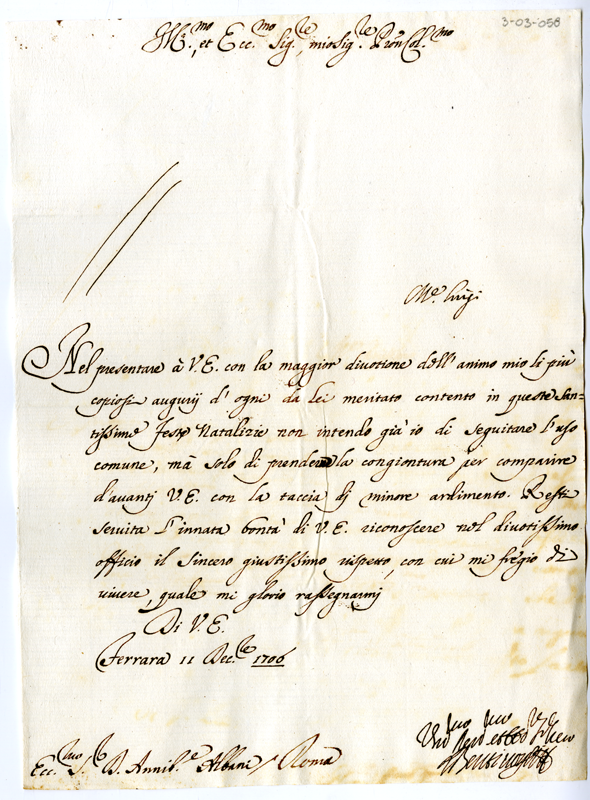 3-03-058
Ill.mo, et Ecc.mo Sig.re, mio Sig.re Pron Col.mo
M.e Luigi
Nel presentare à V.E. con la maggior divotione dell' animo mio li più
copiosi augurij d' ogni da lei meritato contento in queste San=
tissime feste Natalizie non intendo già io di seguitare l' uso
comune, mà solo di prendere la congiontura per comparire
d'avanti V.E. con la taccia di minore ardimento. Resti
servita l' innata bontà di V.E. riconoscere nel divotissimo
officio il sincero giustissimo rispetto, con cui mi fregio di
vivere, quale mi glorio rassegnarmi
Di V.E.
Ferrara 11 Dec.bre 1706
Ecc.mo S.r D. Annib.e Albani / Roma